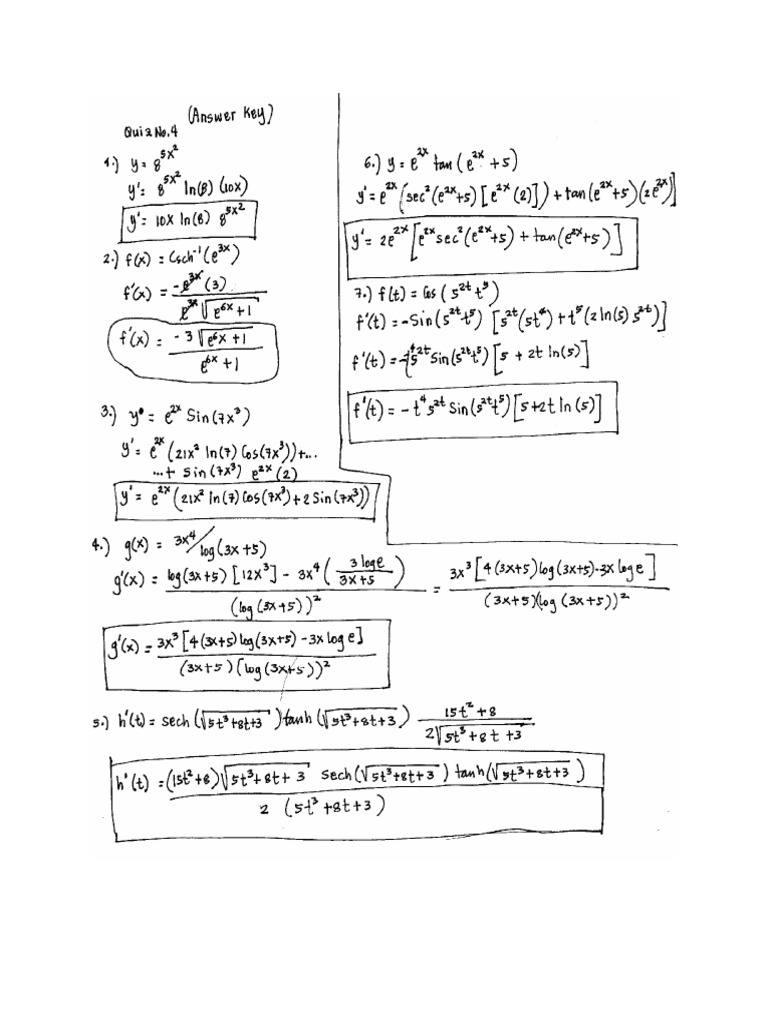 (Answer Key)
Quiz No.4
1.) y = 8^{5x^2}
y' = 8^{5x^2} ln(8) (10x)
y' = 10x ln(8) 8^{5x^2}
2.) f(x) = Csch^{-1}(e^{3x})
f'(x) = \frac{-e^{3x}(3)}{e^{3x}\sqrt{e^{6x}+1}}
f'(x) = \frac{-3\sqrt{e^{6x}+1}}{e^{6x}+1}
3.) y = e^{2x} Sin(7x^3)
y' = e^{2x}(21x^2 ln(7) Cos(7x^3)) + ...
... + sin(7x^3) e^{2x}(2)
y' = e^{2x}(21x^2 ln(7) Cos(7x^3) + 2 Sin(7x^3))
4.) g(x) = 3x^4/log(3x+5)
g'(x) = \frac{log(3x+5)[12x^3] - 3x^4(\frac{3 log e}{3x+5})}{(log(3x+5))^2} = \frac{3x^3[4(3x+5)log(3x+5)-3x log e]}{(3x+5)(log(3x+5))^2}
g'(x) = \frac{3x^3[4(3x+5)log(3x+5)-3x log e]}{(3x+5)(log(3x+5))^2}
5.) h'(t) = sech(\sqrt{5t^3+8t+3}) tanh(\sqrt{5t^3+8t+3}) \frac{15t^2+8}{2\sqrt{5t^3+8t+3}}
h'(t) = \frac{(15t^2+8)\sqrt{5t^3+8t+3} sech(\sqrt{5t^3+8t+3}) tanh(\sqrt{5t^3+8t+3})}{2(5t^3+8t+3)}
6.) y = e^{2x} tan(e^{2x}+5)
y' = e^{2x}(sec^2(e^{2x}+5)[e^{2x}(2)]) + tan(e^{2x}+5)(2e^{2x})
y' = 2e^{2x}[e^{2x} sec^2(e^{2x}+5) + tan(e^{2x}+5)]
7.) f(t) = Cos(5^{2t} t^5)
f'(t) = -Sin(5^{2t} t^5) [5^{2t}(5t^4) + t^5(2 ln(5) 5^{2t})]
f'(t) = -t^4 5^{2t} Sin(5^{2t} t^5)[5 + 2t ln(5)]
f'(t) = -t^4 5^{2t} Sin(5^{2t} t^5)[5+2t ln(5)]